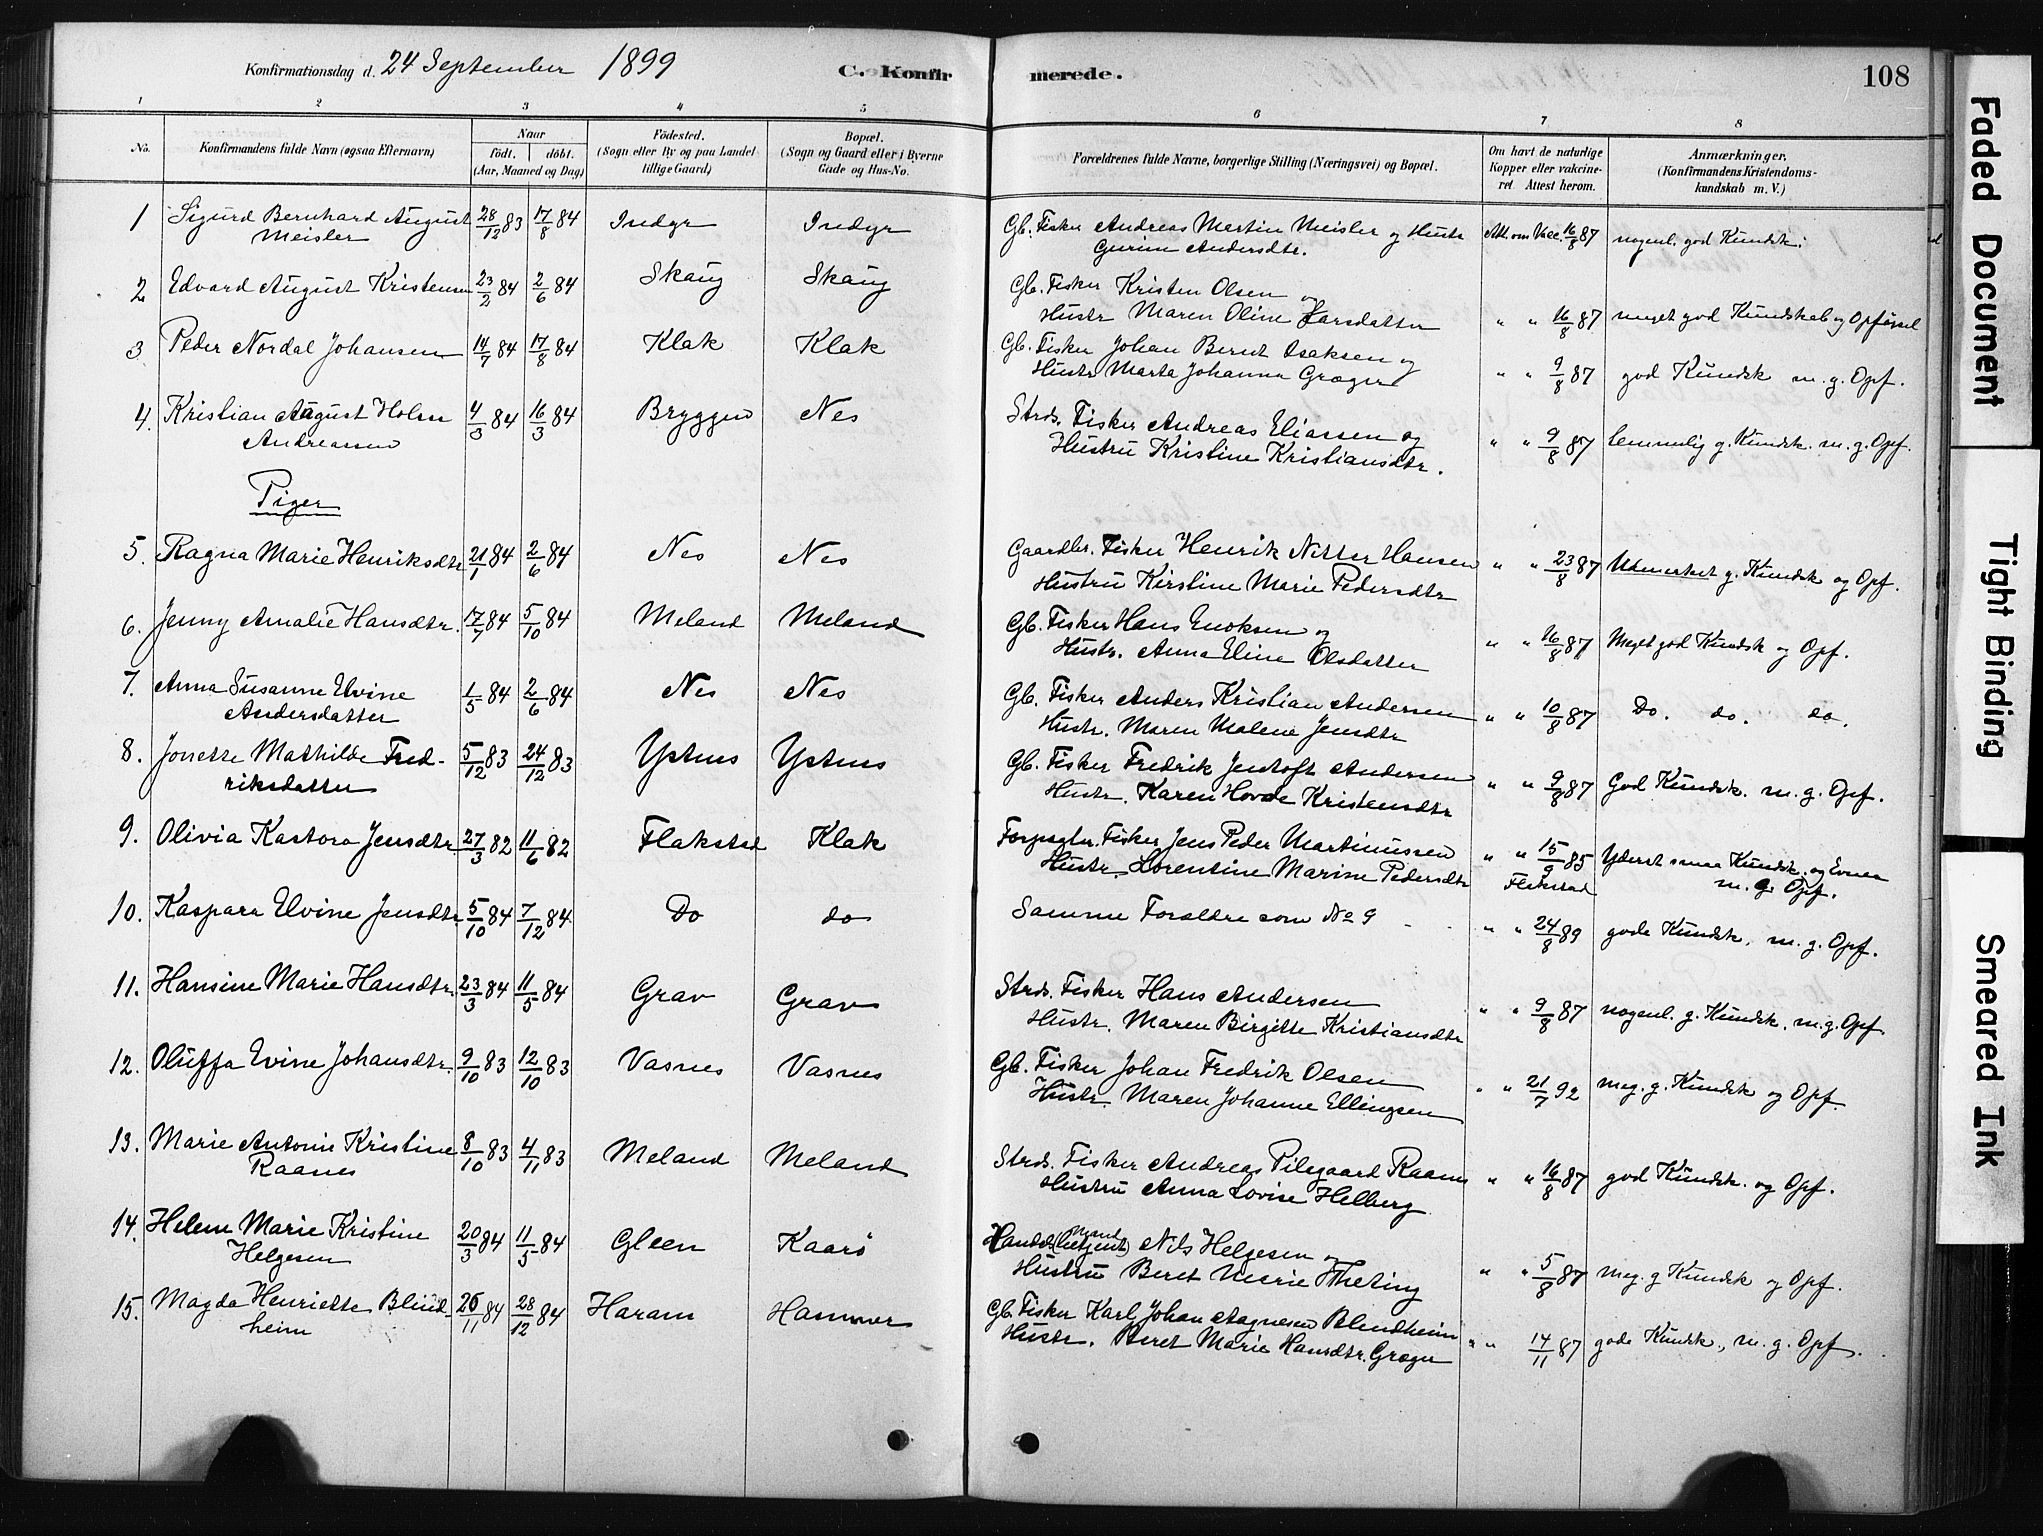 Konfirmationsdag d. 24 September 1899 C. Konfirmerede. 108
1 2 3 4 5 6 7 8
No. Konfirmandens fulde Navn (ogsaa Efternavn) Naar født. døbt. (Aar, Maaned og Dag) Fødested. (Sogn eller By og paa Landet tillige Gaard) Bopæl. (Sogn og Gaard eller i Byerne Gade og Hus-No. Forældrenes fulde Navne, borgerlige Stilling (Næringsvei) og Bopæl. Om havt de naturlige Kopper eller vakcineret Attest herom. Anmærkninger. (Konfirmandens Kristendomskundskab m. V.)
1 Sigurd Bernhard August 28/12 83 17/8 84 Indyr Indyr Gb. Fisker Andreas Martin Meisler og Hustr Att. om Vacc. 16/8 87 nogenl. god Kundsk.
Meisler Gurine Andersdtr.
2 Edvard August Kristensen 23/2 84 2/6 84 Skaug Skaug Gb. Fisker Kristen Olsen og
Hustr Maren Oline Larsdatter " " 16/8 87 meget god Kundskab og Opførsel
3 Peder Nordal Johansen 14/7 84 17/8 84 Klak Klak Gb. Fisker Johan Bernt Isaksen og
Hustr Marta Johanna Græger " " 9/8 87 god Kundsk m. g. Opf.
4. Kristian August Holm 4/3 84 16/3 84 Bryggen Nes Strds. Fisker Andreas Eliassen og
Andreassen Hustru Kristine Kristiansdtr. " " 9/8 87 temmelig g. Kundsk. m. g. Opf.
Piger
5. Ragna Marie Henriksdtr 21/1 84 2/6 84 Nes Nes Gaardbr. Fisker Henrik Nitter Hansen " " 23/8 87 Udmerket g. Kundsk og Opf.
Hustru Kirstine Marie Pedersdtr
6. Jenny Amalie Hansdtr. 17/7 84 5/10 84 Meland Meland Gb. Fisker Hans Enoksen og
Hustr. Anna Eline Olsdatter " " 16/8 87 Meget god Kundsk og Opf.
7. Anna Susanne Elvine 1/5 84 2/6 84 Nes Nes Gb. Fisker Anders Kristian Andersen " " 10/8 87 Do. do. do.
Andersdatter Hustr. Maren Malene Jensdtr
8. Jonette Mathilde Fred- 5/12 83 24/12 83 Ystnes Ystnes Gb. Fisker Fredrik Jentoft Andersen
riksdatter Hustr. Karen Hovde Kristensdtr " " 9/8 87 God Kundsk. m. g. Opf.
9. Olivia Kastora Jensdtr. 27/3 82 11/6 82 Flakstad Klak Forpagter Fisker Jens Peder Martinussen " " 15/9 85 Yderst smaa Kundsk. og Evner
Hustr. Lorentine Marine Pedersdtr Flakstad m. g. Opf.
10. Kaspara Elvine Jensdtr. 5/10 84 7/12 84 Do do Samme Forældre som No 9 " " 24/8 89 gode Kundsk. m. g. Opf.
11. Hansine Marie Hansdtr. 23/3 84 11/5 84 Grav Grav Strds. Fisker Hans Andersen
Hustr. Maren Birgitte Kristiansdtr " " 9/8 87 nogenl. g. Kundsk. m. g. Opf.
12. Oluffa Evine Johansdtr. 9/10 83 12/10 83 Vasnes Vasnes Gb. Fisker Johan Fredrik Olsen
Hustr. Maren Johanne Ellingsen " " 21/7 92 meg. g. Kundsk og Opf.
13. Marie Antonie Kristine 8/10 83 4/11 83 Meland Meland Strds. Fisker Andreas Pilegaard Raanes
Raanes Hustru Anna Lovise Helberg " " 16/8 87 god Kundsk. og Opf.
14. Helene Marie Kristine 20/3 84 11/5 84 Gleen Kaarø Handels(betjent)mand Nils Helgesen og
Helgesen Hustru Beret Marie Theting " " 5/8 87 meg. g Kundsk og Opf.
15. Magda Henriette Blind- 26/11 84 28/12 84 Haram Hammer Gb. Fisker Karl Johan Aagnesen Blendheim
heim Hustr. Beret Marie Hansdtr. Græger " " 14/11 87 gode Kundsk., m. g. Opf.
Faded Document
Tight Binding
Smeared Ink